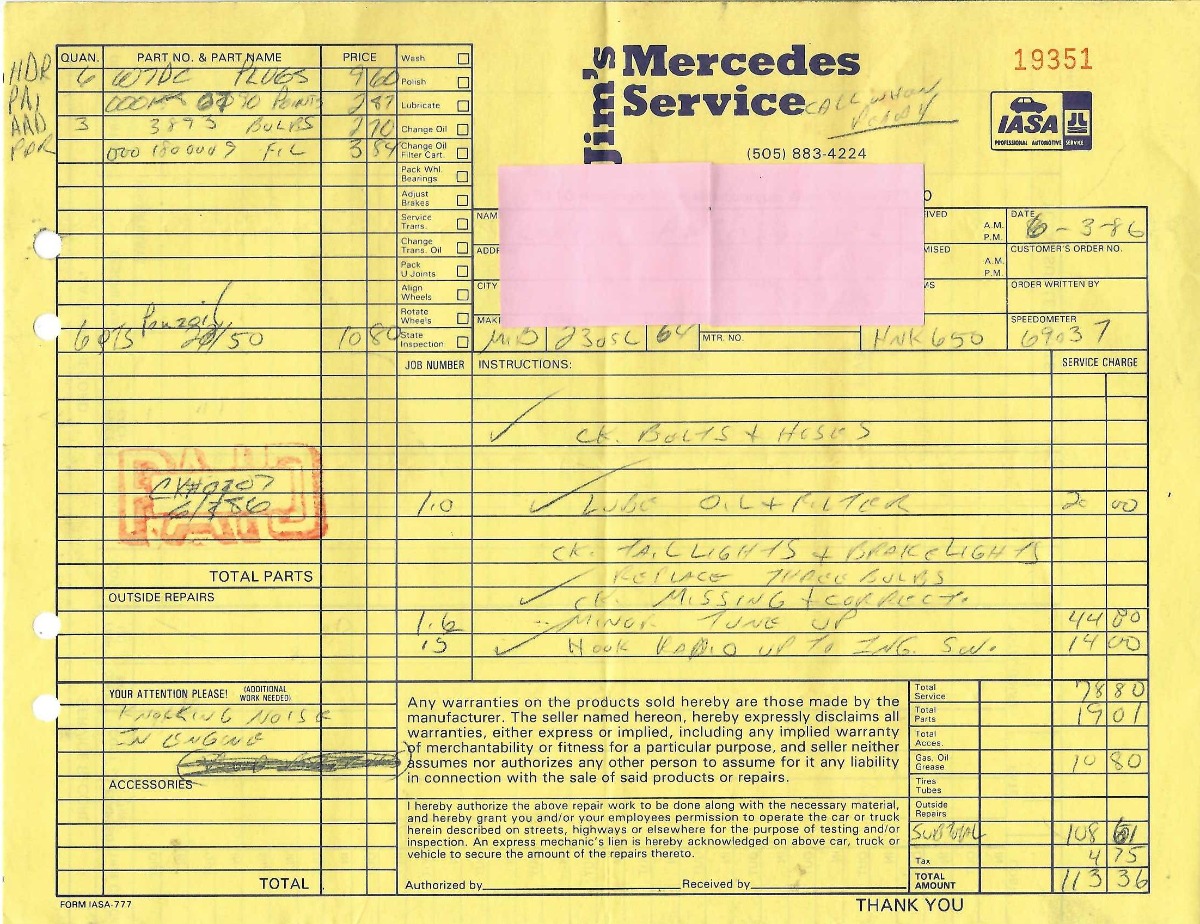 Jim's Mercedes Service
19351
CALL WHEN READY
IASA
PROFESSIONAL AUTOMOTIVE SERVICE
(505) 883-4224
QUAN. PART NO. & PART NAME PRICE
HDR 6 W7DC PLUGS 9 60
PAI POINTS 2 87
AAD 3 3893 BULBS 2 70
PDR 000 180 0009 FIL 3 84
6 QTS 20/50 10 80
Wash
Polish
Lubricate
Change Oil
Change Oil Filter Cart.
Pack Whl. Bearings
Adjust Brakes
Service Trans.
Change Trans. Oil
Pack U Joints
Align Wheels
Rotate Wheels
State Inspection
NAM
ADDR
CITY
MAK
O
EIVED A.M. P.M.
DATE 6-3-86
MISED A.M. P.M.
CUSTOMER'S ORDER NO.
MS
ORDER WRITTEN BY
MB 230SL 64
MTR. NO.
HNK650
SPEEDOMETER 69037
JOB NUMBER INSTRUCTIONS: SERVICE CHARGE
✓ CK. BOLTS + HOSES
1.0 ✓ LUBE OIL + FILTER 20 00
CK. TAILLIGHTS + BRAKELIGHTS
REPLACE THREE BULBS
✓ CK. MISSING + CORRECT.
1.6 MINOR TUNE UP 44 80
.5 ✓ HOOK RADIO UP TO ING. SW. 14 00
PAID
TOTAL PARTS
OUTSIDE REPAIRS
YOUR ATTENTION PLEASE! (ADDITIONAL WORK NEEDED)
KNOCKING NOISE
IN ENGINE
ACCESSORIES
TOTAL
Any warranties on the products sold hereby are those made by the
manufacturer. The seller named hereon, hereby expressly disclaims all
warranties, either express or implied, including any implied warranty
of merchantability or fitness for a particular purpose, and seller neither
assumes nor authorizes any other person to assume for it any liability
in connection with the sale of said products or repairs.
I hereby authorize the above repair work to be done along with the necessary material,
and hereby grant you and/or your employees permission to operate the car or truck
herein described on streets, highways or elsewhere for the purpose of testing and/or
inspection. An express mechanic's lien is hereby acknowledged on above car, truck or
vehicle to secure the amount of the repairs thereto.
Authorized by Received by
Total Service 78 80
Total Parts 19 01
Total Acces.
Gas, Oil Grease 10 80
Tires Tubes
Outside Repairs
SUBTOTAL 108 61
Tax 4 75
TOTAL AMOUNT 113 36
FORM IASA-777
THANK YOU